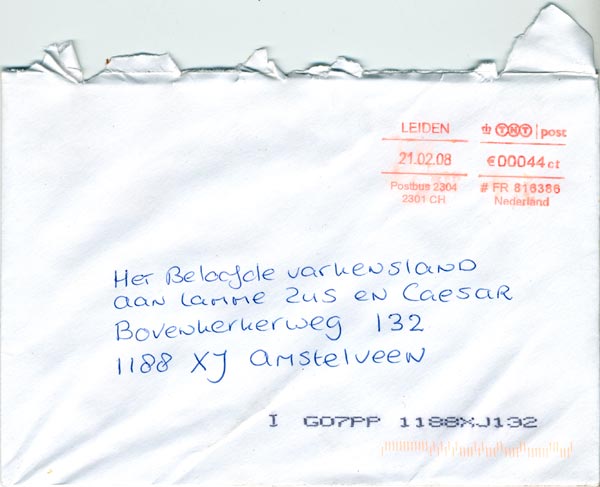 LEIDEN TNT post
21.02.08 €00044ct
Postbus 2304 # FR 816386
2301 CH Nederland
Het Beloofde varkensland
aan Lamme Zus en Caesar
Bovenkerkerweg 132
1188 XJ Amstelveen
I GO7PP 1188XJ132